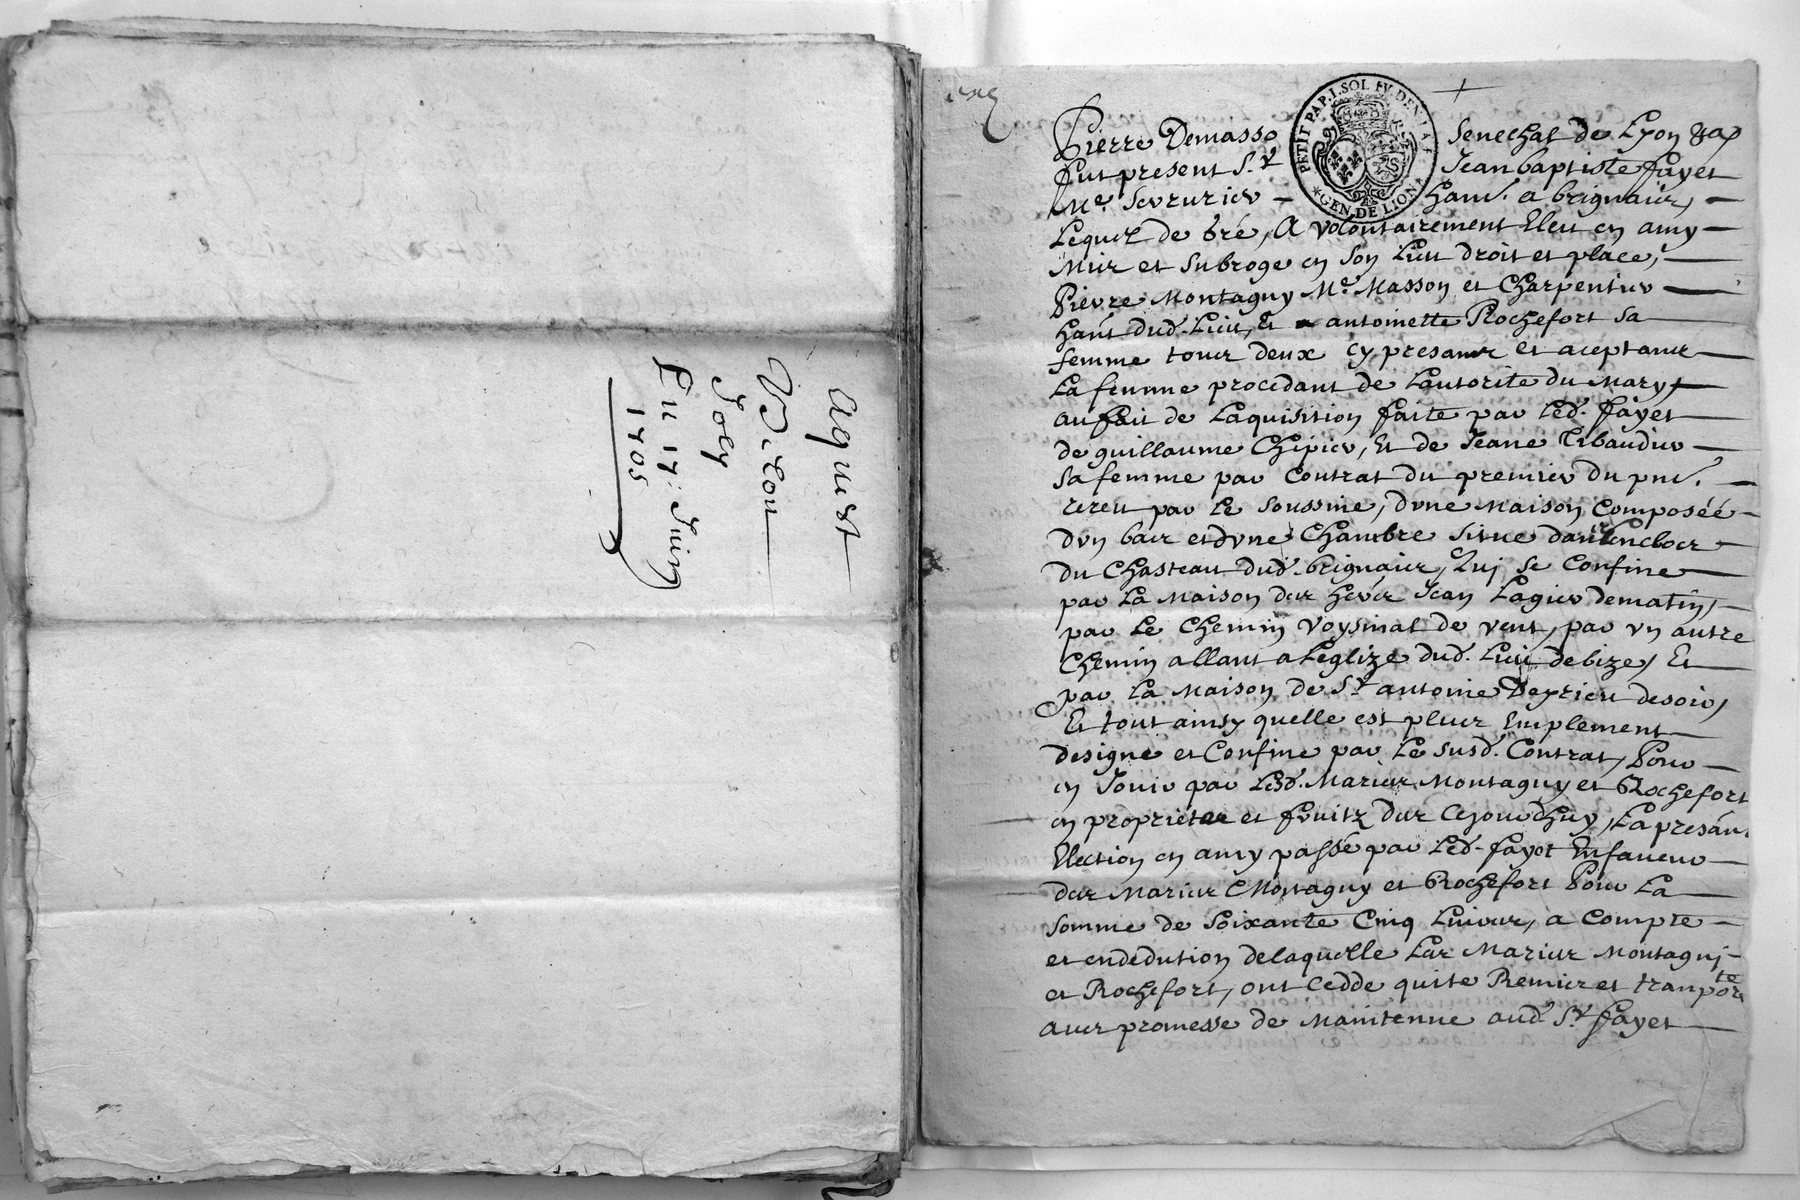 aquest
Joly
Du 17: Juin
1705
PETIT PAP. 1. SOL IV. DEN. LA F.
GEN. DE LION
Pierre Demasso Senechal de Lyon
fut present S.r Jean baptiste fayet
Me. Serrurier - hant. a brignais, -
Lequel de gré, A volontairement Eleu en amy -
Mis et Subroge en Son Lieu droit et place,
Pierre Montagny Me. Masson et Charpentier -
hant dud. Lieu, Et antoinette Rochefort Sa
femme tous deux cy presans et aceptans
La femme procedant de Lautorite du mary,
au fait de Laquisition faite par Led. fayet
de guillaume Chipier, Et de Jeane Tibaudier -
Sa femme par Contrat du premier du pnt.
receu par Le Soussine, dvne maison Composéé -
dvn bas et dvne Chambre Situe dans Lenclos -
du Chasteau dud. brignais, Qui Se Confine
par La maison des hers Jean Lagier dematin, -
par Le Chemin voysinal de vent, par vn autre
Chemin allant a Leglize dud. Lieu debize, Et
par La maison de Sr. antoine Deyrieu desoir,
Et tout ainsy quelle est plus Emplement
designe et Confine par Le Susd. Contrat, Pour -
en Jouir par Lesd. Maries Montagny et Rochefort
en propriete et fruitz des Cejourdhuy, La presan
Election en amy passée par Led. fayet Enfaveur -
des Maries Montagny et Rochefort Pour La
Somme de Soixante Cinq Livres, a Compte -
et endedution delaquelle Les Maries Montagny -
et Rochefort, ont Cedde quite Remis et tranporte
avec promesse de Maintenue aud. Sr. fayet